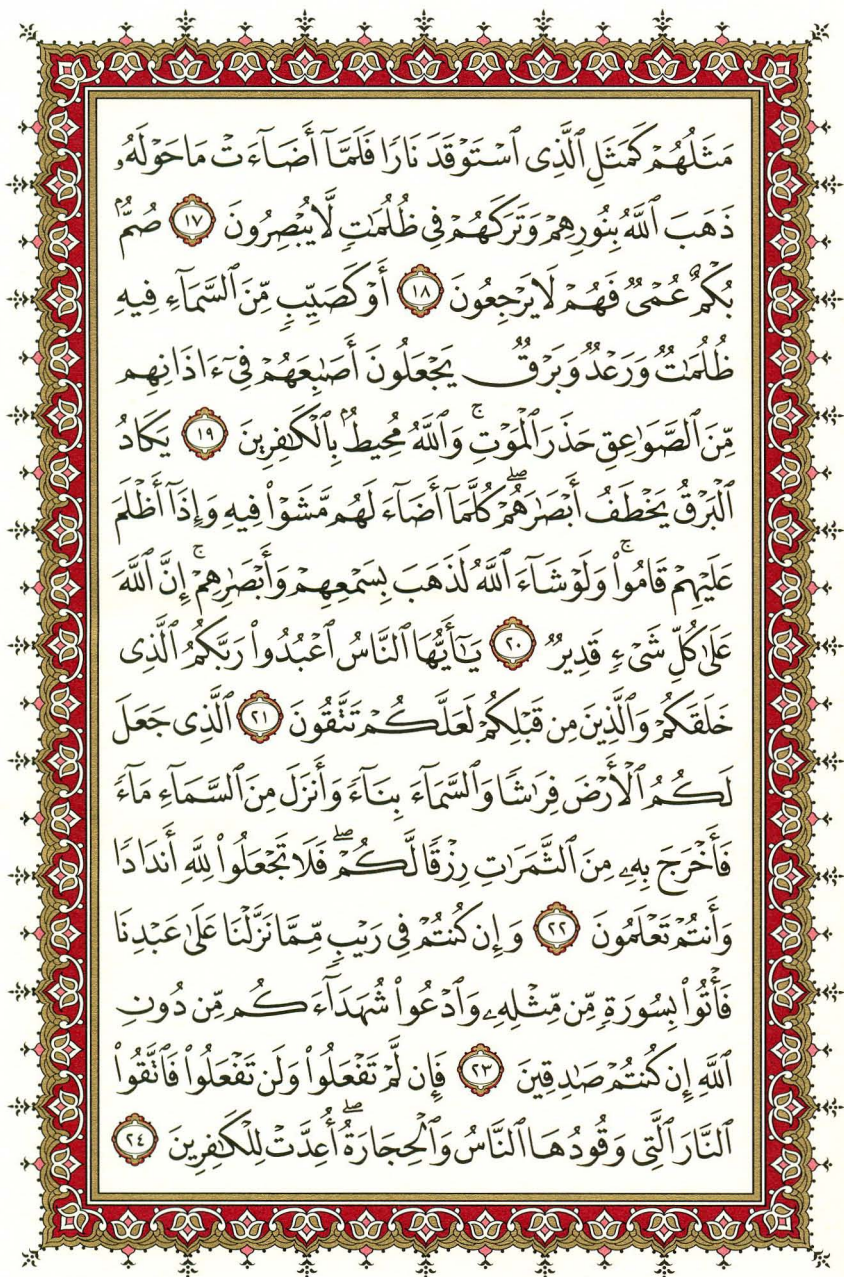 مَثَلُهُمۡ كَمَثَلِ ٱلَّذِى ٱسۡتَوۡقَدَ نَارٗا فَلَمَّآ أَضَآءَتۡ مَاحَوۡلَهُۥ
ذَهَبَ ٱللَّهُ بِنُورِهِمۡ وَتَرَكَهُمۡ فِى ظُلُمَٰتٖ لَّايُبۡصِرُونَ ١٧ صُمُّۢ
بُكۡمٌ عُمۡىٞ فَهُمۡ لَايَرۡجِعُونَ ١٨ أَوۡ كَصَيِّبٖ مِّنَ ٱلسَّمَآءِ فِيهِ
ظُلُمَٰتٞ وَرَعۡدٞ وَبَرۡقٞ يَجۡعَلُونَ أَصَٰبِعَهُمۡ فِىٓ ءَاذَانِهِم
مِّنَ ٱلصَّوَٰعِقِ حَذَرَ ٱلۡمَوۡتِۚ وَٱللَّهُ مُحِيطُۢ بِٱلۡكَٰفِرِينَ ١٩ يَكَادُ
ٱلۡبَرۡقُ يَخۡطَفُ أَبۡصَٰرَهُمۡۖ كُلَّمَآ أَضَآءَ لَهُم مَّشَوۡاْ فِيهِ وَإِذَآ أَظۡلَمَ
عَلَيۡهِمۡ قَامُواْۚ وَلَوۡ شَآءَ ٱللَّهُ لَذَهَبَ بِسَمۡعِهِمۡ وَأَبۡصَٰرِهِمۡۚ إِنَّ ٱللَّهَ
عَلَىٰ كُلِّ شَىۡءٖ قَدِيرٞ ٢٠ يَٰٓأَيُّهَا ٱلنَّاسُ ٱعۡبُدُواْ رَبَّكُمُ ٱلَّذِى
خَلَقَكُمۡ وَٱلَّذِينَ مِن قَبۡلِكُمۡ لَعَلَّكُمۡ تَتَّقُونَ ٢١ ٱلَّذِى جَعَلَ
لَكُمُ ٱلۡأَرۡضَ فِرَٰشٗا وَٱلسَّمَآءَ بِنَآءٗ وَأَنزَلَ مِنَ ٱلسَّمَآءِ مَآءٗ
فَأَخۡرَجَ بِهِۦ مِنَ ٱلثَّمَرَٰتِ رِزۡقٗا لَّكُمۡۖ فَلَا تَجۡعَلُواْ لِلَّهِ أَندَادٗا
وَأَنتُمۡ تَعۡلَمُونَ ٢٢ وَإِن كُنتُمۡ فِى رَيۡبٖ مِّمَّا نَزَّلۡنَا عَلَىٰ عَبۡدِنَا
فَأۡتُواْ بِسُورَةٖ مِّن مِّثۡلِهِۦ وَٱدۡعُواْ شُهَدَآءَكُم مِّن دُونِ
ٱللَّهِ إِن كُنتُمۡ صَٰدِقِينَ ٢٣ فَإِن لَّمۡ تَفۡعَلُواْ وَلَن تَفۡعَلُواْ فَٱتَّقُواْ
ٱلنَّارَ ٱلَّتِى وَقُودُهَا ٱلنَّاسُ وَٱلۡحِجَارَةُۖ أُعِدَّتۡ لِلۡكَٰفِرِينَ ٢٤